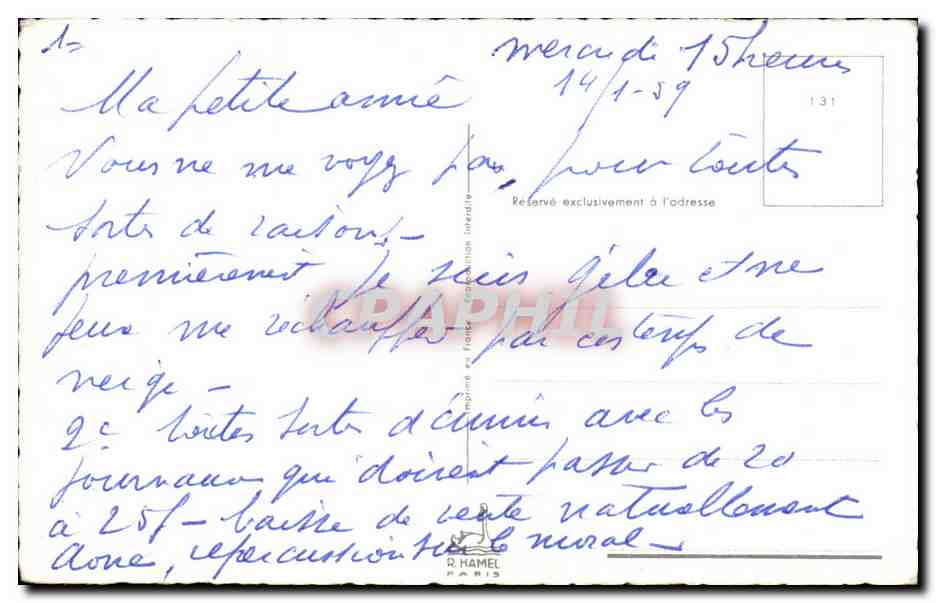 1-
mercredi 15 heures
14/1-59
131
Ma petite amie
Vous ne me voyez pas, pour toutes
Réservé exclusivement à l'adresse
sortes de raisons -
premièrement je suis gelée et ne
peux me réchauffer par ces temps de
neige -
2e toutes sortes d'ennuis avec les
journaux qui doivent passer de 20
à 25f - baisse de vente naturellement
donc, répercussion sur le moral -
Imprimé en France Reproduction Interdite
CPAPHIL
R. HAMEL
PARIS